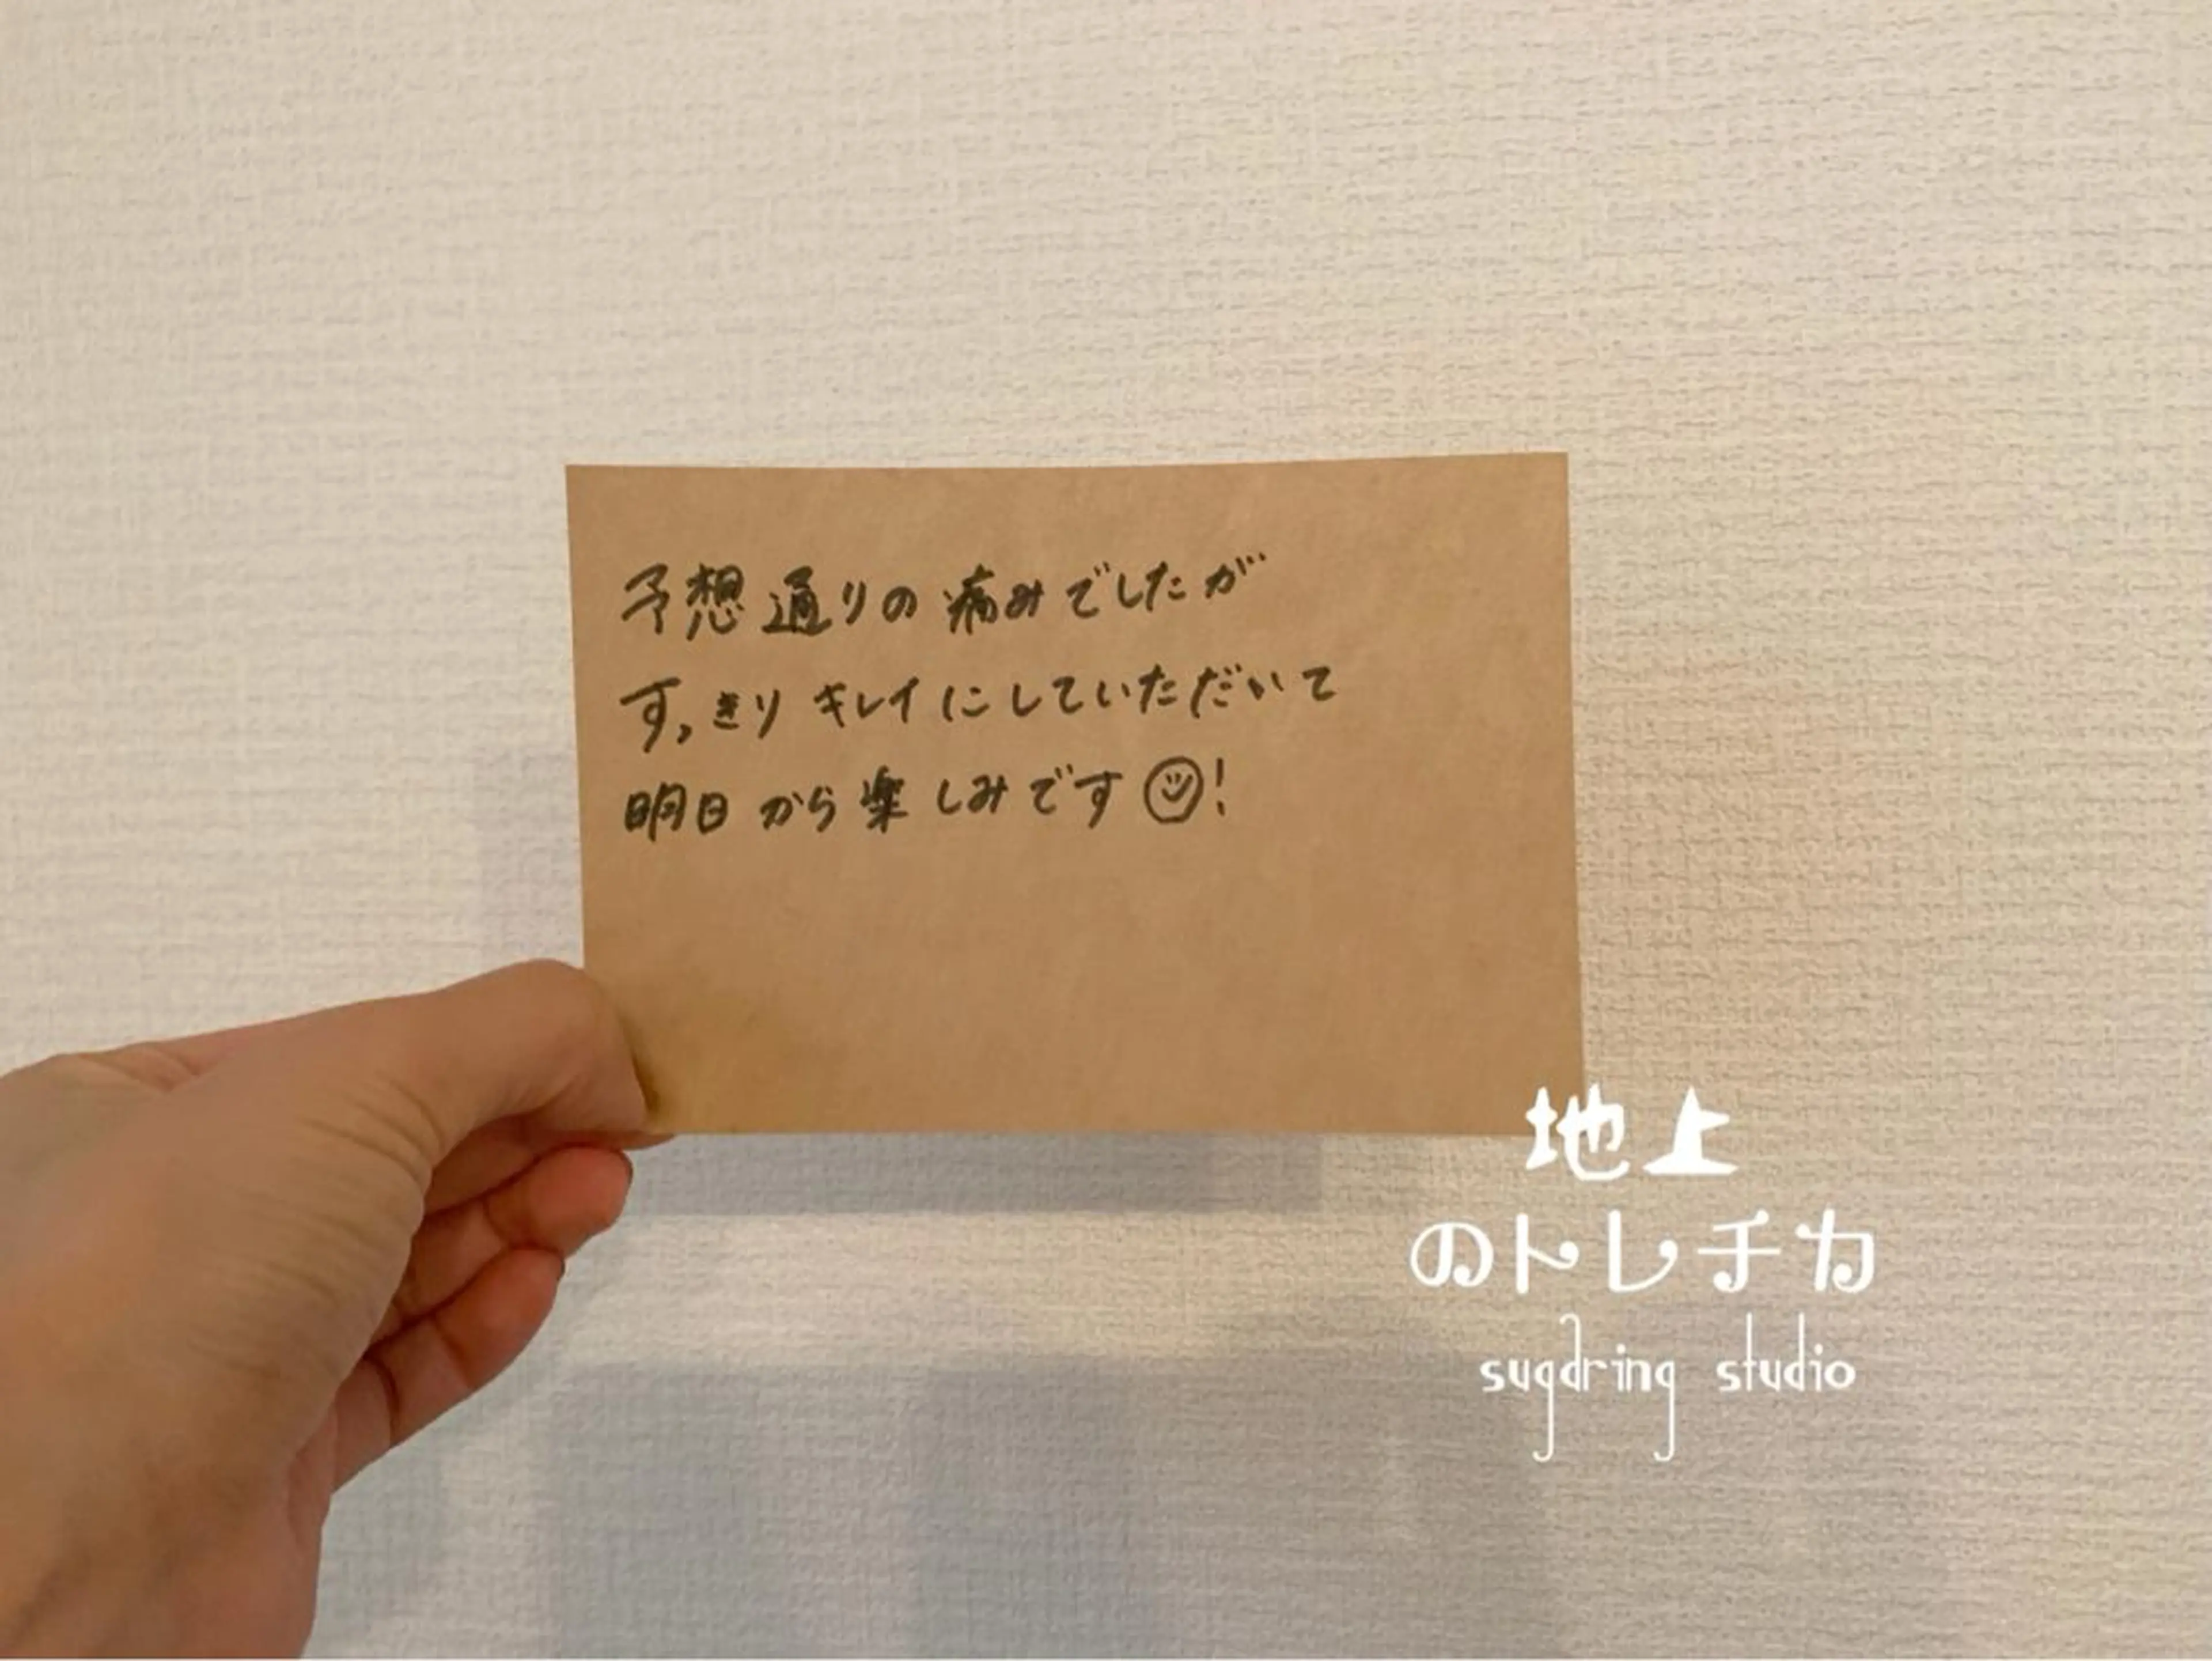 予想通りの痛みでしたが
すっきりキレイにしていただいて
明日から楽しみです☺!
地上
のトレチカ
sugaring studio